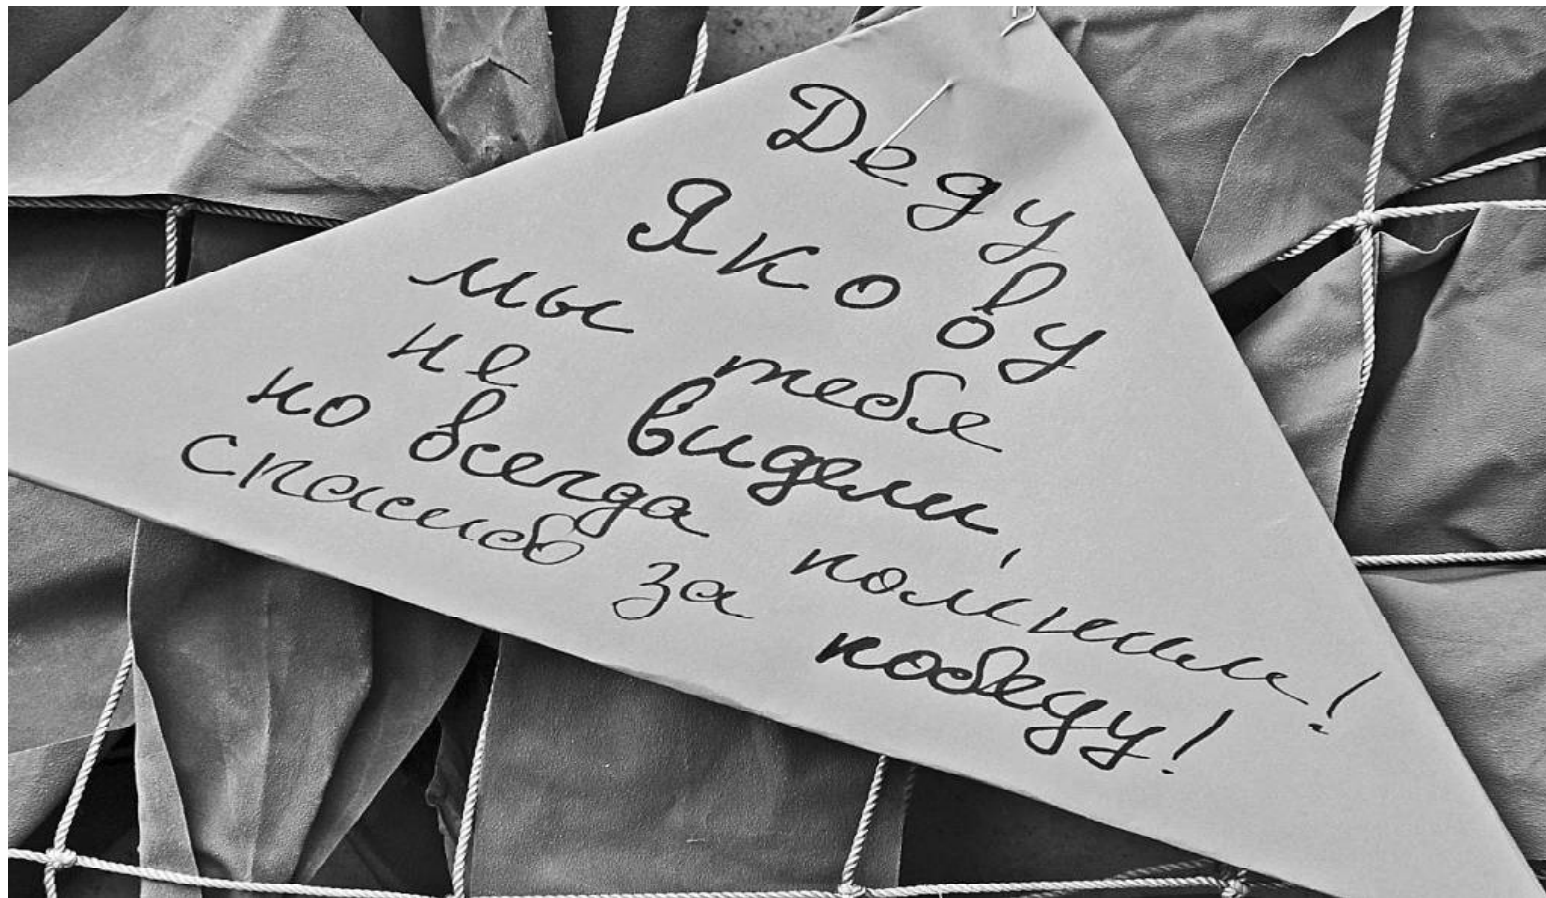 Деду
Якову
мы тебя
не видели,
но всегда помним!
спасибо за победу!